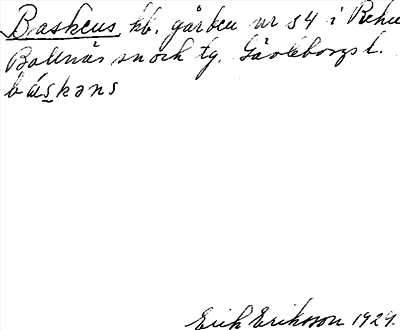 Baskens, kb. gården nr 54 i Rehn
Bollnäs sn och tg. Gävleborgs l.
báskəns
Erik Eriksson 1929.